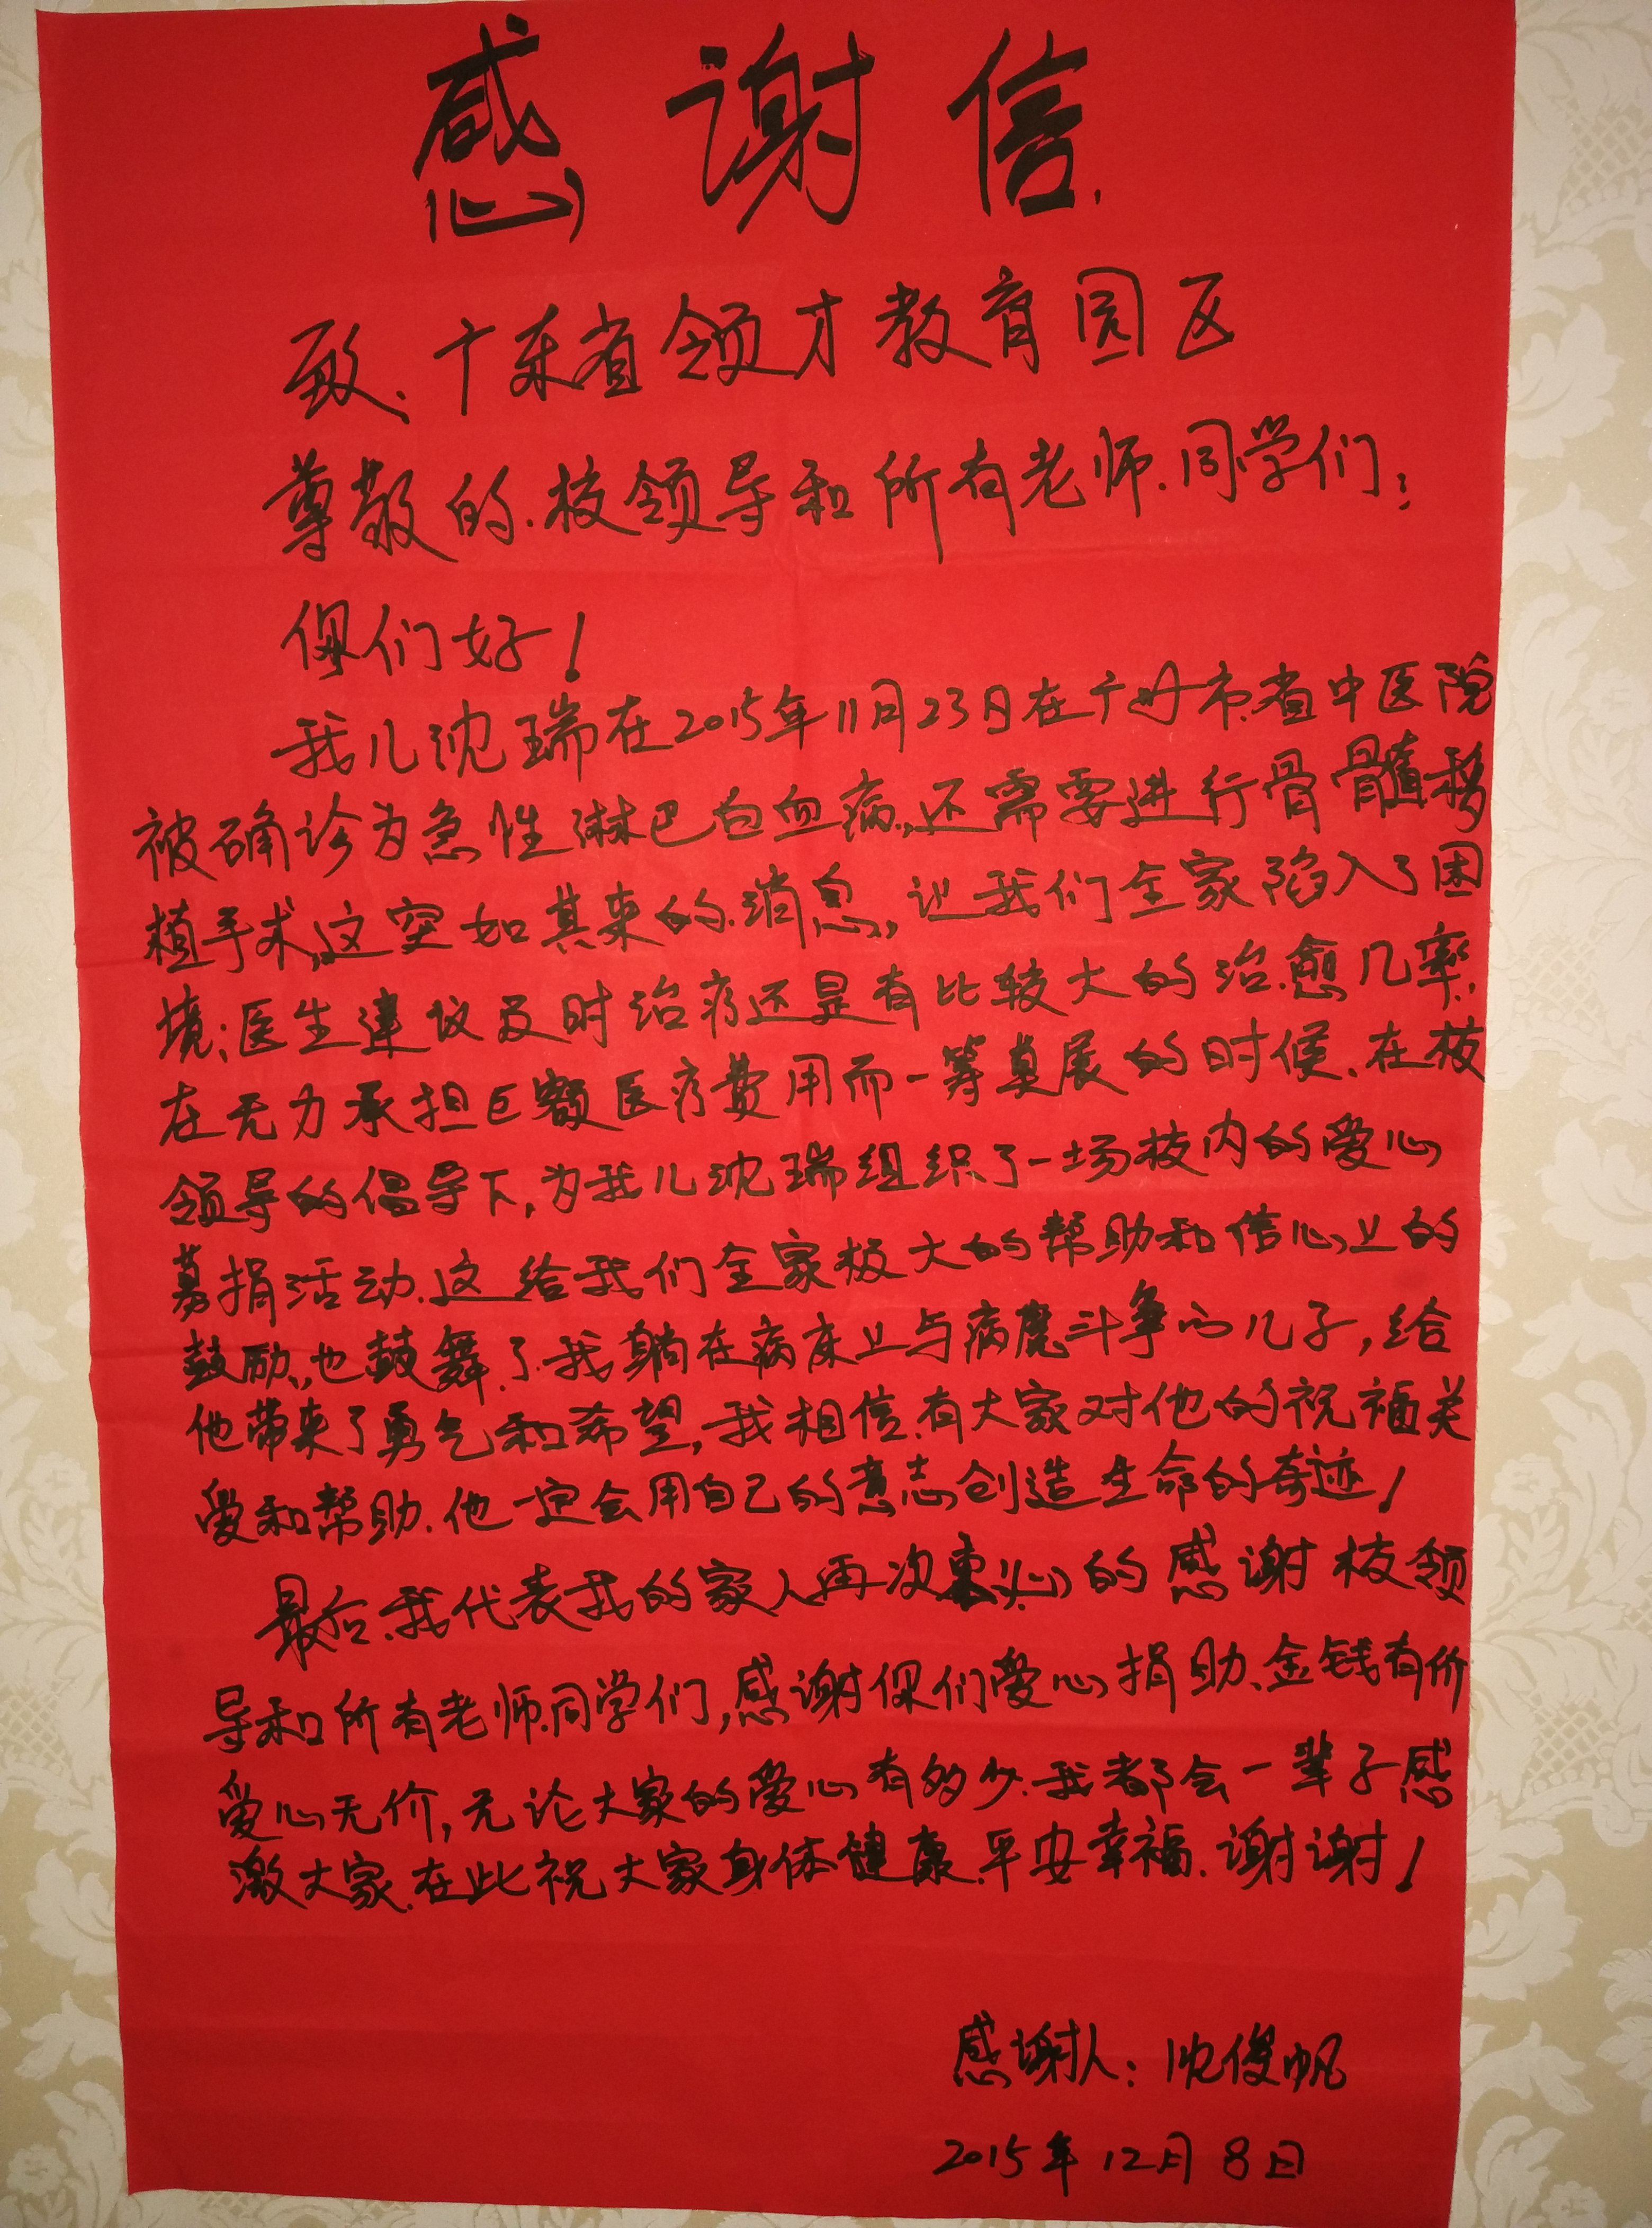 感谢信
致、广东省领才教育园区
尊敬的.校领导和所有老师.同学们：
你们好！
我儿沈瑞在2015年11月23日在广州市.省中医院
被确诊为急性淋巴白血病,还需要进行骨髓移
植手术,这突如其来的.消息,让我们全家陷入了困
境;医生建议及时治疗还是有比较大的治愈几率.
在无力承担巨额医疗费用而一筹莫展的时候.在校
领导的倡导下,为我儿沈瑞组织了一场校内的爱心
募捐活动.这给我们全家极大的帮助和信心上的
鼓励,也鼓舞了.我躺在病床上与病魔斗争的儿子,给
他带来了勇气和希望,我相信.有大家对他的祝福关
爱和帮助.他一定会用自己的意志创造生命的奇迹！
最后.我代表我的家人再次衷心的感谢校领
导和所有老师.同学们,感谢你们爱心捐助、金钱有价
爱心无价,无论大家的爱心有多少.我都会一辈子感
激大家.在此祝大家身体健康.平安幸福.谢谢！
感谢人：沈俊帆
2015年12月8日